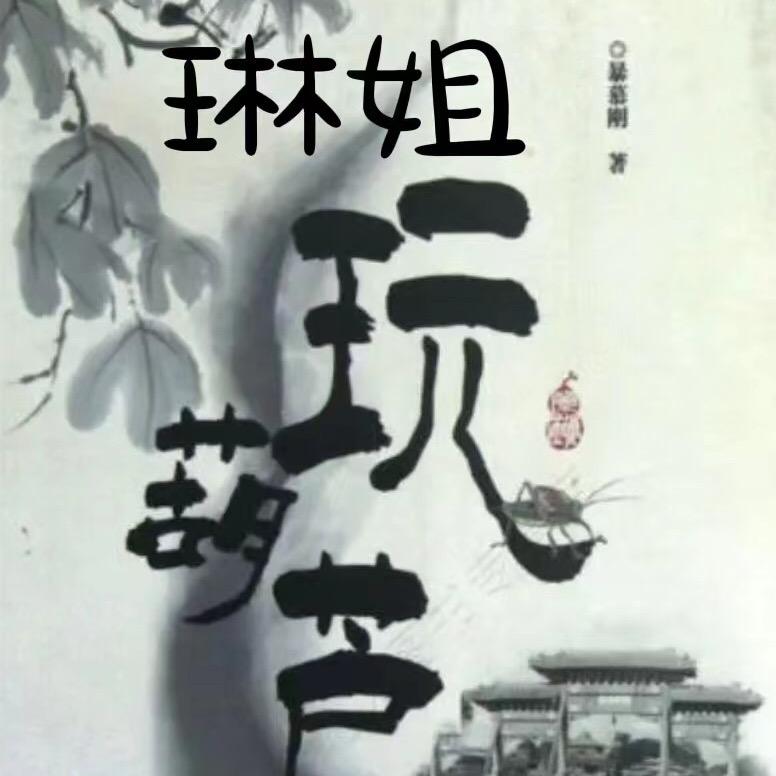 琳姐
玩
葫芦
◎暴慕刚 著